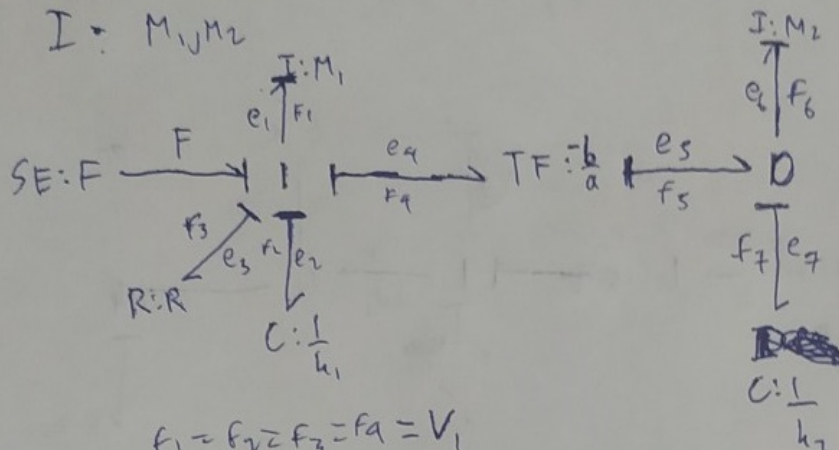 I : M₁, M₂
I:M₁
I:M₂
e₁ f₁
e₆ f₆
SE:F
F
1
e₄
f₄
TF:-b/a
e₅
f₅
0
f₃
e₃
f₂
e₂
f₇ e₇
R:R
C:1/k₁
C:1/k₂
f₁ = f₂ = f₃ = f₄ = V₁